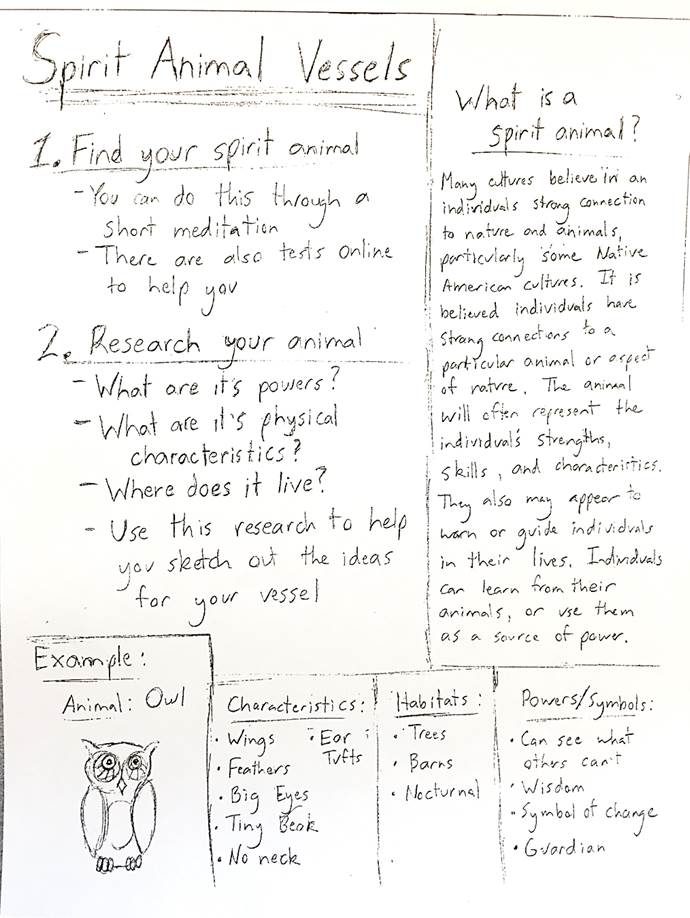 Spirit Animal Vessels
1. Find your spirit animal
- You can do this through a
short meditation
- There are also tests online
to help you
2. Research your animal
- What are it's powers?
- What are it's physical
characteristics?
- Where does it live?
- Use this research to help
you sketch out the ideas
for your vessel
What is a
spirit animal?
Many cultures believe in an
individuals strong connection
to nature and animals,
particularly some Native
American cultures. It is
believed individuals have
strong connections to a
particular animal or aspect
of nature. The animal
will often represent the
individual's strengths,
skills, and characteristics.
They also may appear to
warn or guide individuals
in their lives. Individuals
can learn from their
animals, or use them
as a source of power.
Example:
Animal: Owl
Characteristics:
• Wings
• Feathers
• Big Eyes
• Tiny Beak
• No neck
• Ear
Tufts
Habitats:
• Trees
• Barns
• Nocturnal
Powers/Symbols:
• Can see what
others can't
• Wisdom
• Symbol of change
• Guardian